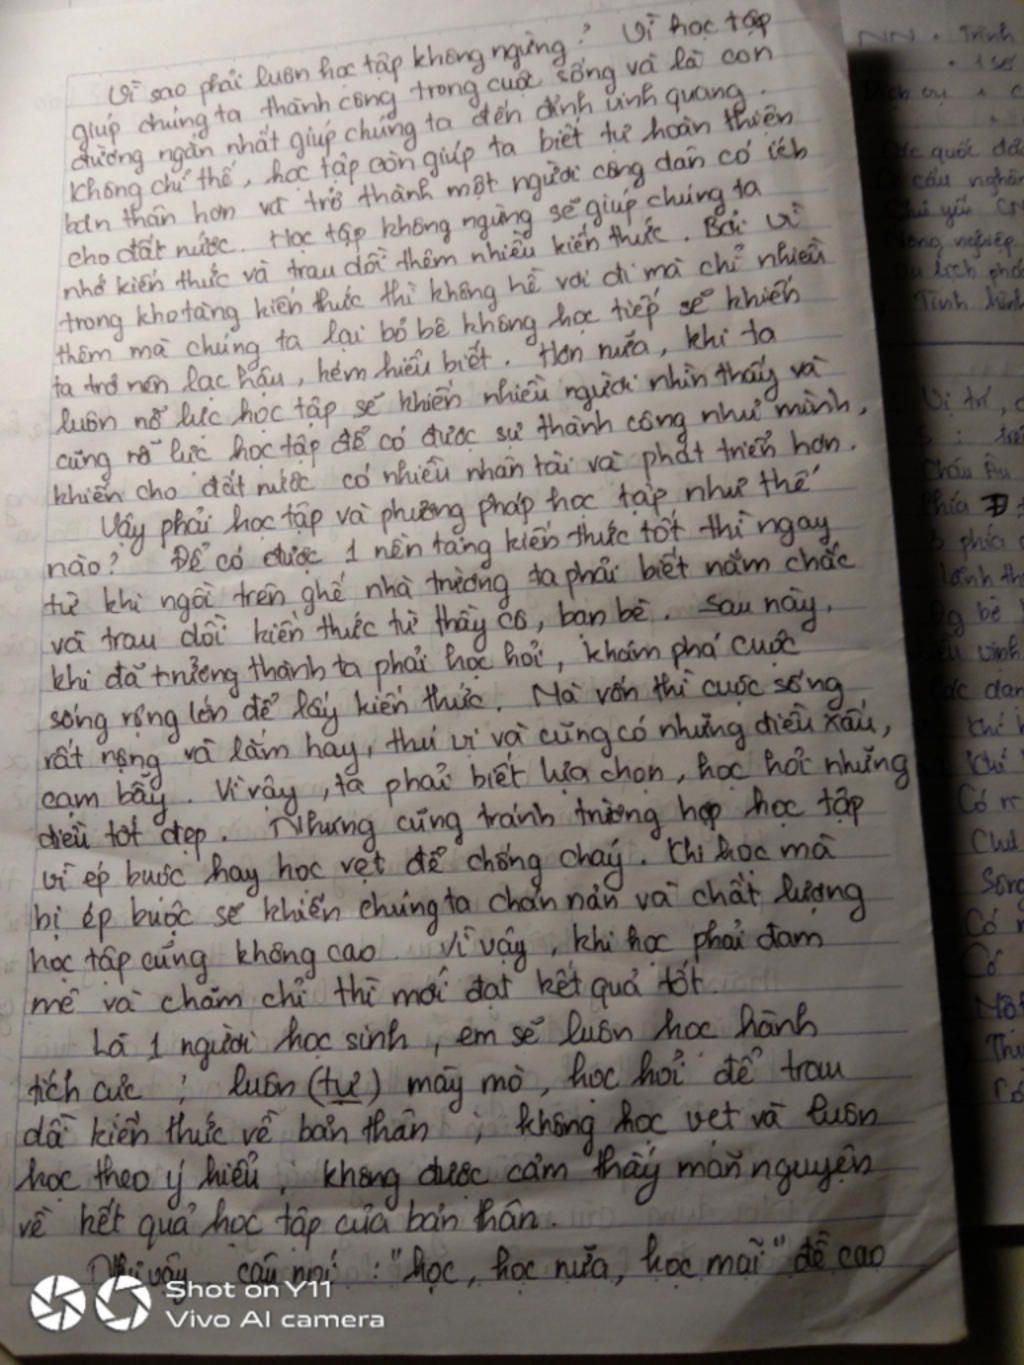 Vì sao phải luôn học tập không ngừng? Vì học tập
giúp chúng ta thành công trong cuộc sống và là con
đường ngắn nhất giúp chúng ta đến đỉnh vinh quang.
Không chỉ thế, học tập còn giúp ta biết tự hoàn thiện
bản thân hơn và trở thành một người công dân có ích
cho đất nước. Học tập không ngừng sẽ giúp chúng ta
nhớ kiến thức và trau dồi thêm nhiều kiến thức. Bởi vì
trong kho tàng kiến thức thì không hề vơi đi mà chỉ nhiều
thêm mà chúng ta lại bỏ bê không học tiếp sẽ khiến
ta trở nên lạc hậu, kém hiểu biết. Hơn nữa, khi ta
luôn nỗ lực học tập sẽ khiến nhiều người nhìn thấy và
cũng nỗ lực học tập để có được sự thành công như mình,
khiến cho đất nước có nhiều nhân tài và phát triển hơn.
Vậy phải học tập và phương pháp học tập như thế
nào? Để có được 1 nền tảng kiến thức tốt thì ngay
từ khi ngồi trên ghế nhà trường ta phải biết nắm chắc
và trau dồi kiến thức từ thầy cô, bạn bè. Sau này,
khi đã trưởng thành ta phải học hỏi, khám phá cuộc
sống rộng lớn để lấy kiến thức. Mà vốn thì cuộc sống
rất rộng và lắm hay, thú vị và cũng có những điều xấu,
cạm bẫy. Vì vậy, ta phải biết lựa chọn, học hỏi những
điều tốt đẹp. Nhưng cũng tránh trường hợp học tập
vì ép buộc hay học vẹt để chống chạy. Khi học mà
bị ép buộc sẽ khiến chúng ta chán nản và chất lượng
học tập cũng không cao. Vì vậy, khi học phải đam
mê và chăm chỉ thì mới đạt kết quả tốt.
Là 1 người học sinh, em sẽ luôn học hành
tích cực; luôn (tự) mày mò, học hỏi để trau
dồi kiến thức về bản thân; không học vẹt và luôn
học theo ý hiểu; không được cảm thấy mãn nguyện
về kết quả học tập của bản thân.
Như vậy câu nói: "học, học nữa, học mãi" đề cao
Shot on Y11
Vivo AI camera
NN. Trình
Dịch vụ
quốc
nghiệp
Du lịch
Tình hình
Vị trí,
Châu Âu
Phía
phía
Khí
Khí
Có
Sông
Có
Có